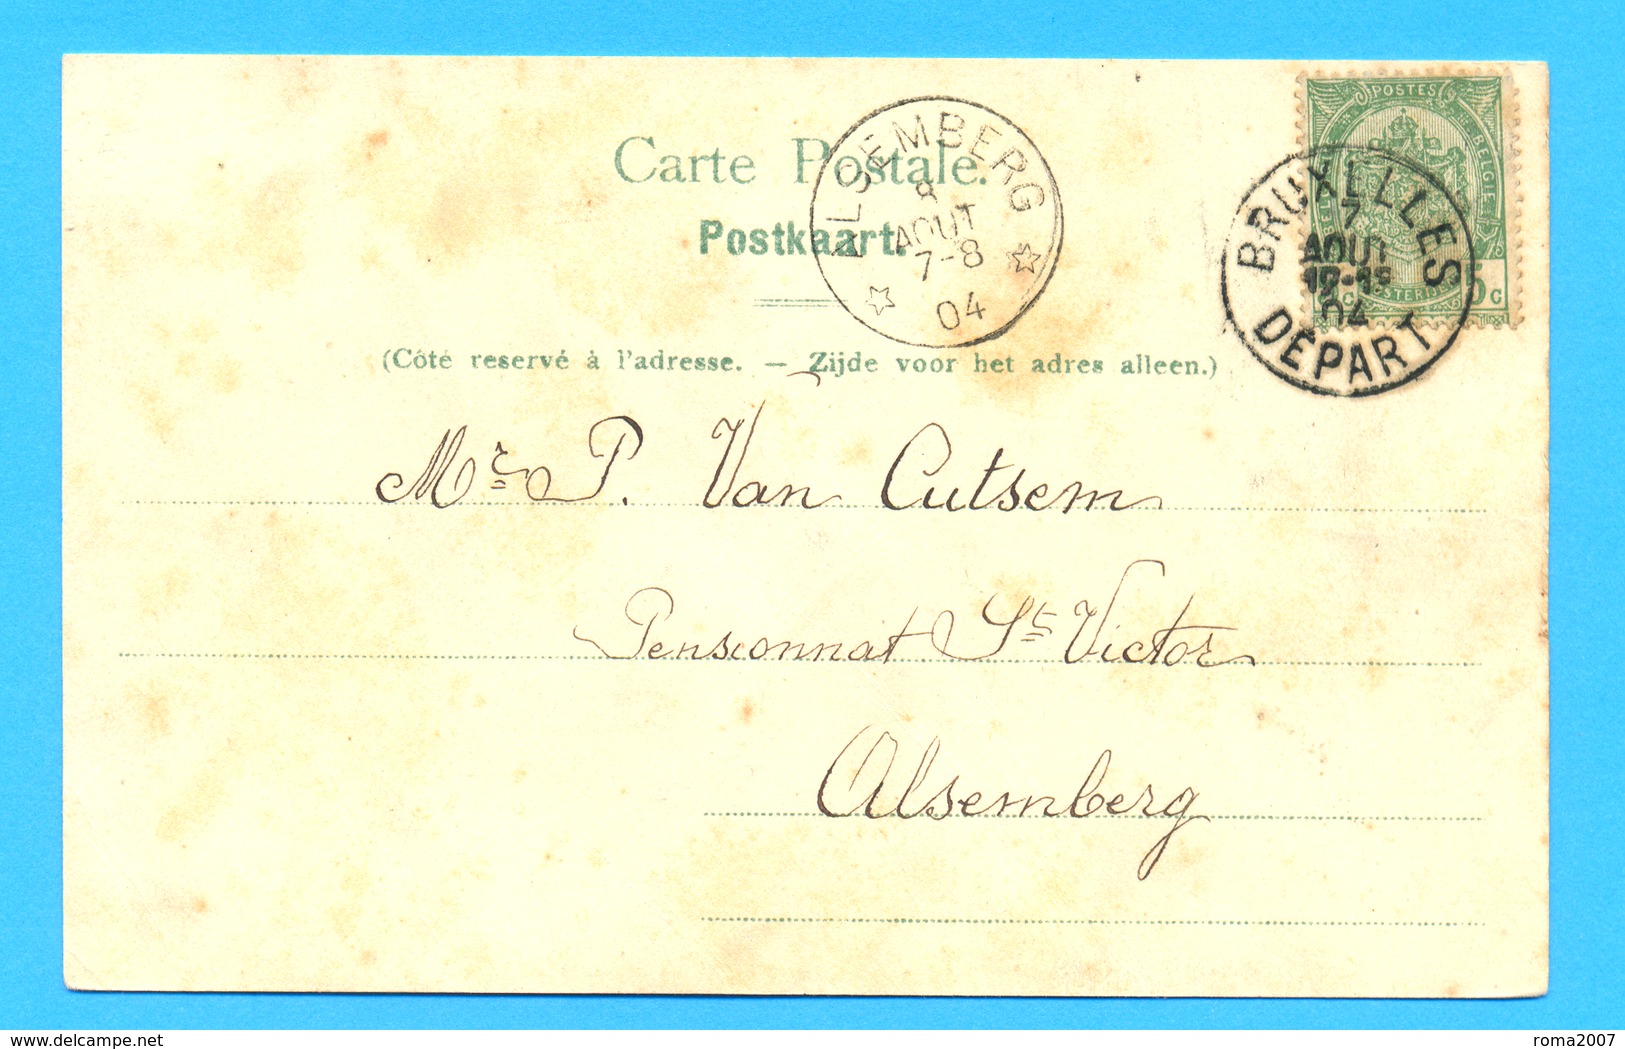 Carte Postale.
Postkaart.
(Côté reservé à l'adresse. — Zijde voor het adres alleen.)
ALSEMBERG
8
AOUT
7-8
04
POSTES
BRUXELLES
7
AOUT
04
DÉPART
5c
Mr P. Van Cutsem
Pensionnat St Victor
Alsemberg
delcampe.net
roma2007